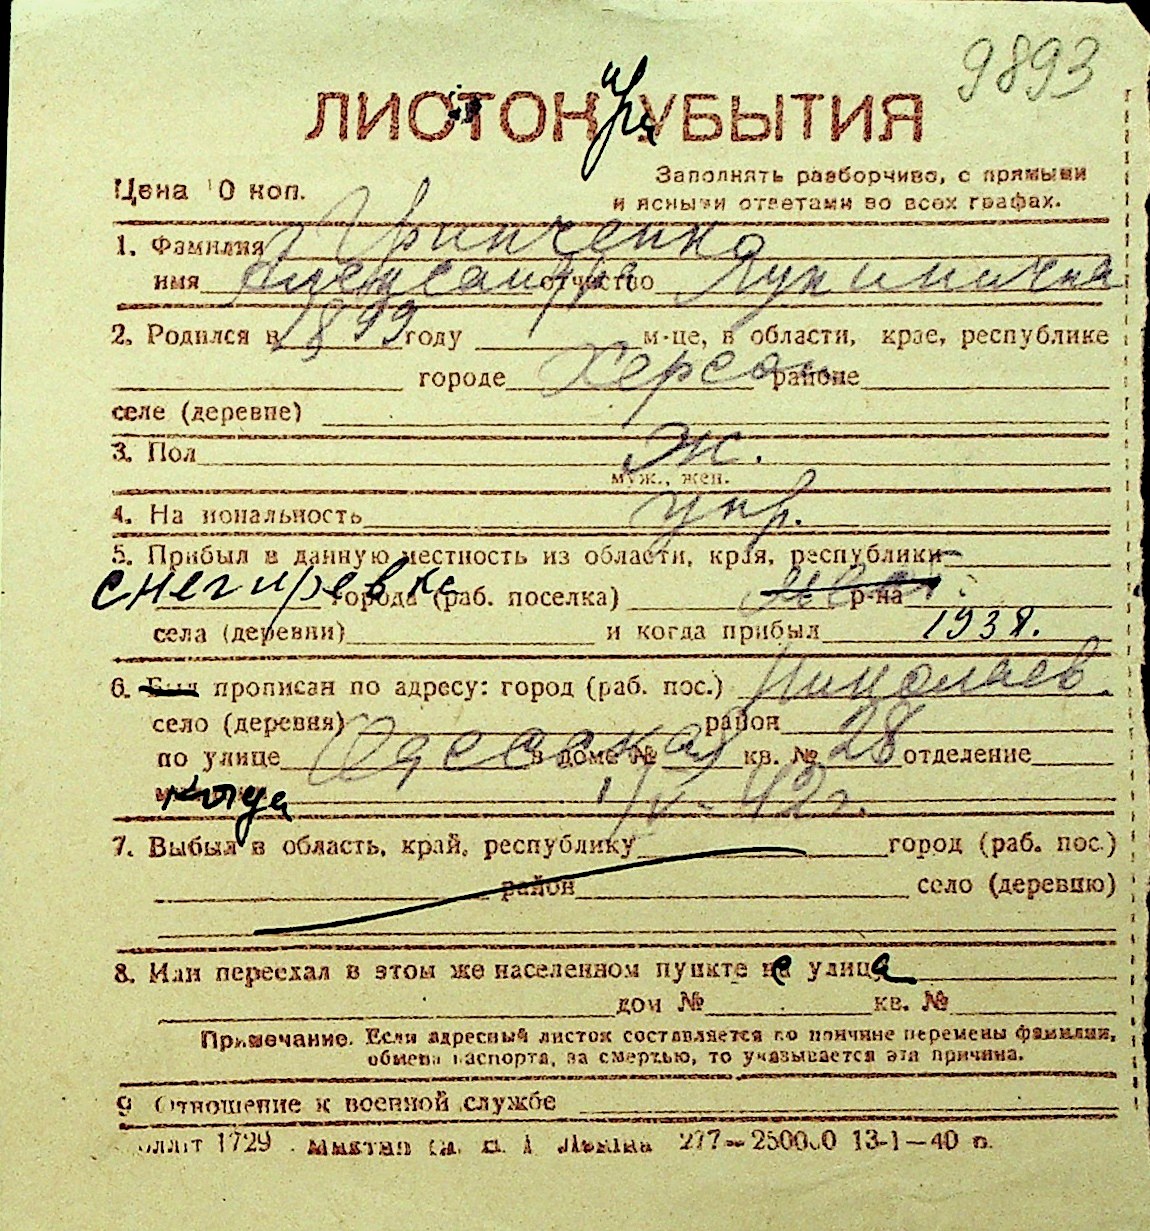 9893
ЛИСТОК при УБЫТИЯ
Цена 10 коп.
Заполнять разборчиво, с прямыми
и ясными ответами во всех графах.
1. Фамилия Гринченко
имя Александра отчество Лукинична
2. Родился в 1899 году м-це, в области, крае, республике
городе Херсон районе
селе (деревне)
3. Пол ж.
муж., жен.
4. Национальность укр.
5. Прибыл в данную местность из области, края, республики
Снегиревке города (раб. поселка) р-на
села (деревни) и когда прибыл 1938.
6. Был прописан по адресу: город (раб. пос.) Николаев
село (деревня) район
по улице Одесская в доме № кв. № 28 отделение
Когда 1/IV-42г.
7. Выбыл в область, край, республику город (раб. пос.)
район село (деревню)
8. Или переехал в этом же населенном пункте с улица
дом № кв. №
Примечание. Если адресный листок составляется по причине перемены фамилии,
обмена паспорта, за смертью, то указывается эта причина.
9 Отношение к военной службе
1729 277—250000 13-1—40 п.